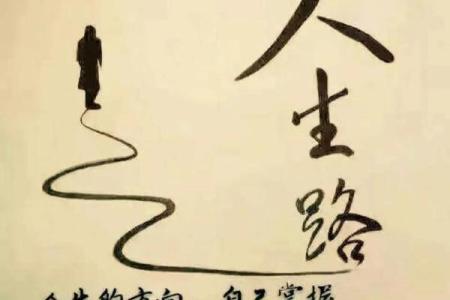 人生路
人生的方向 自己掌握